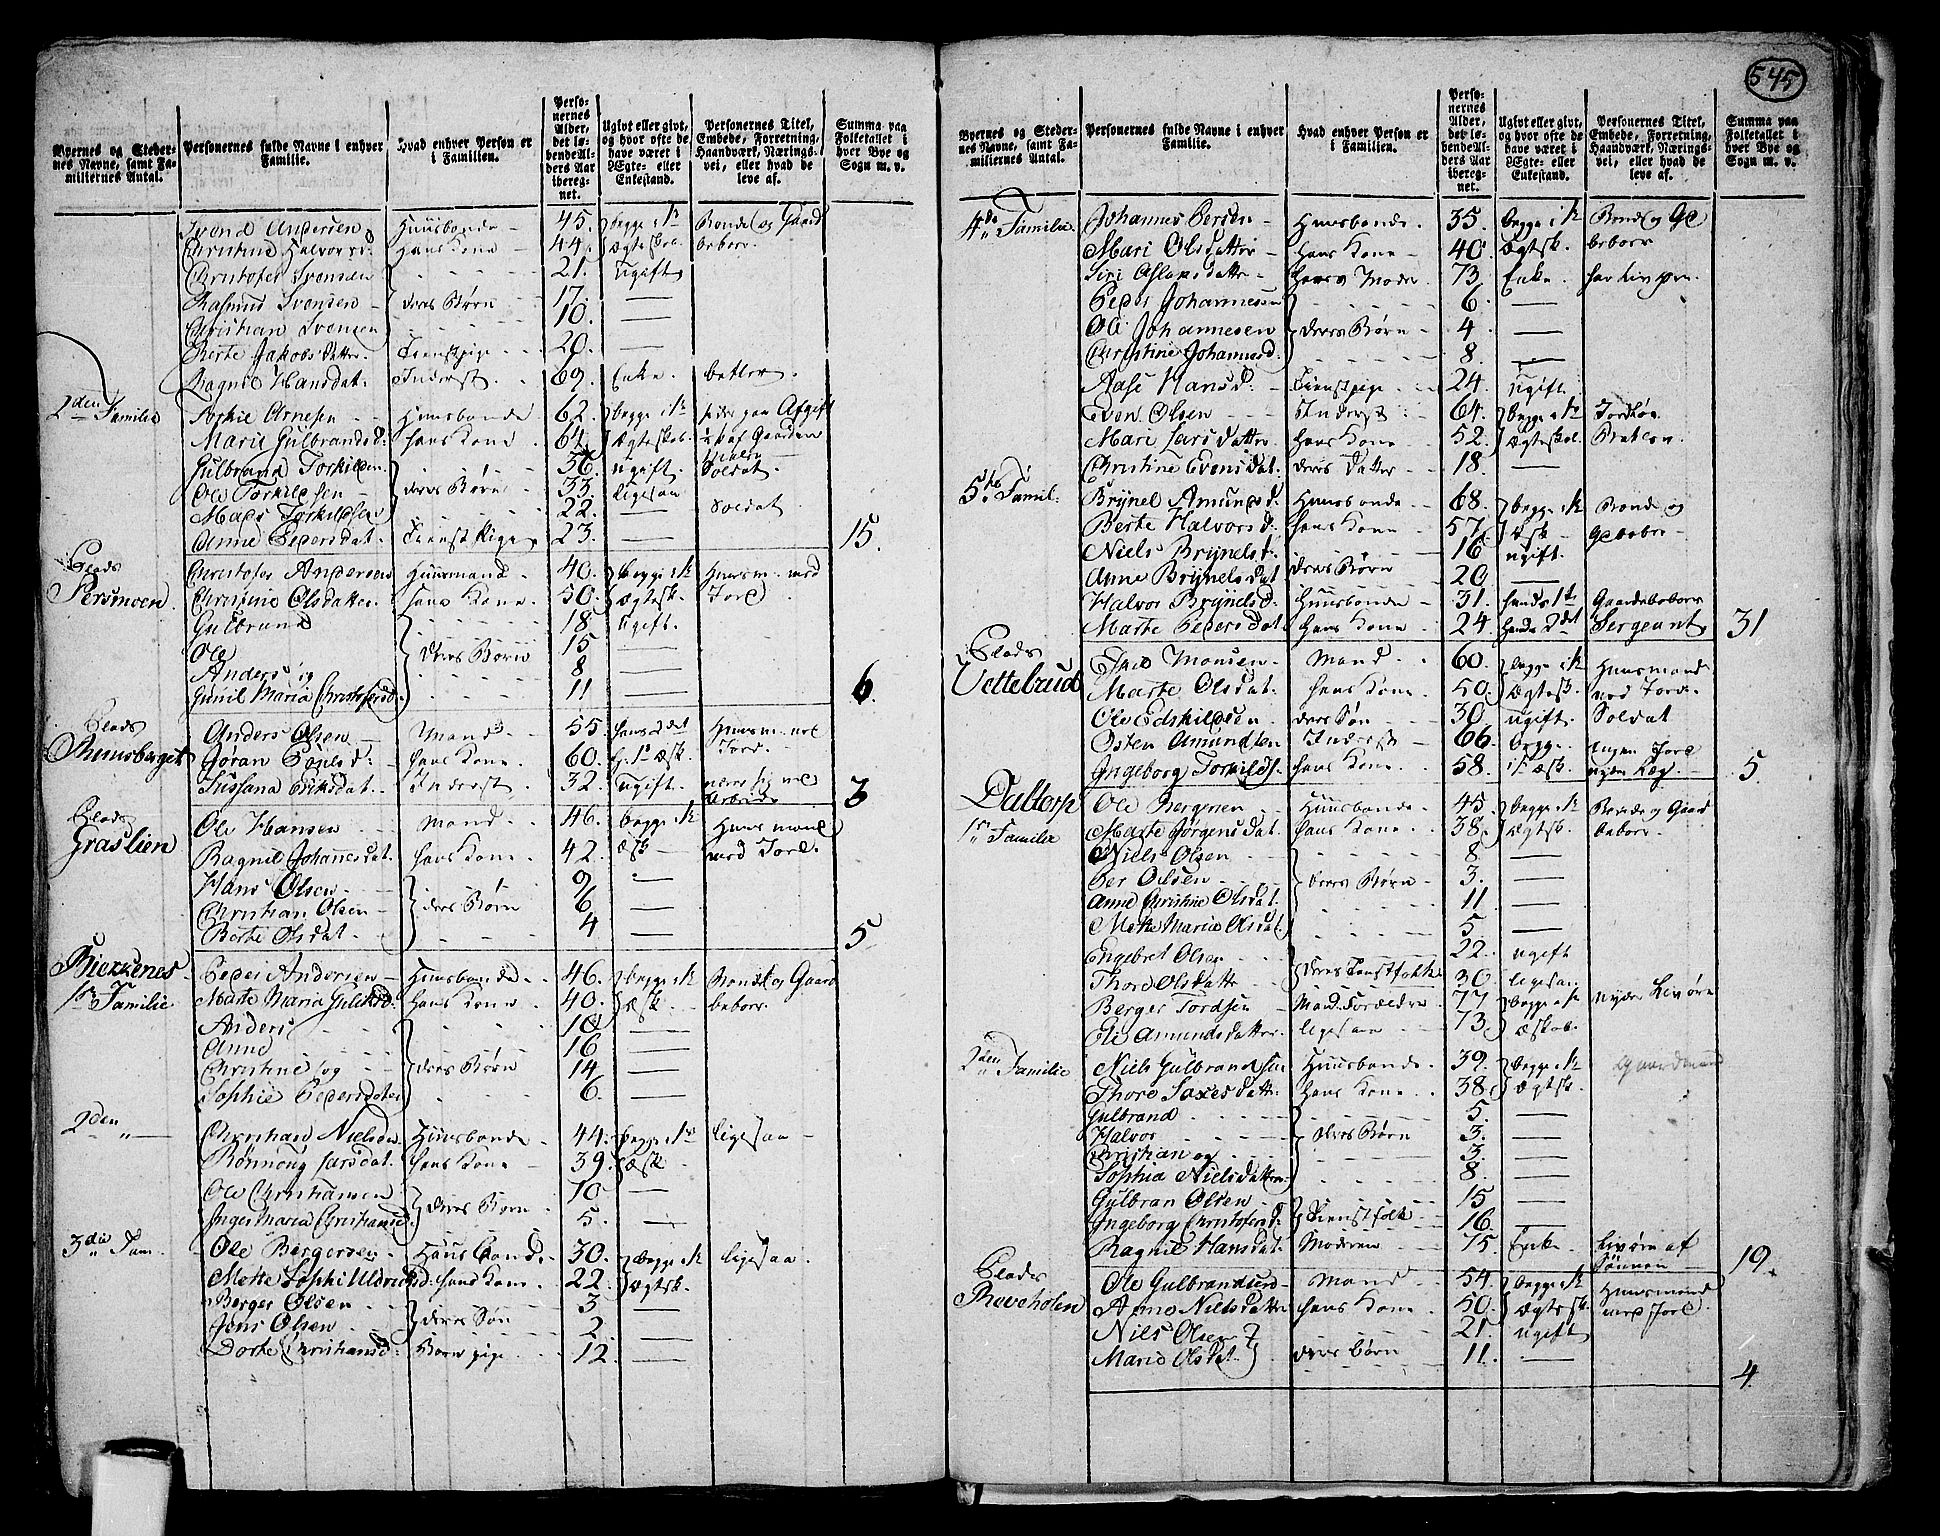 545
Byernes og Stedernes Navne, samt Familiernes Antal. | Personernes fulde Navne i enhver Familie. | Hvad enhver Person er i Familien. | Personernes Alder, det løbende Alders Aar iberegnet. | Ugivt eller givt, og hvor ofte de have været i Ægte- eller Enkestand. | Personernes Titel, Embede, Forretning, Haandværk, Næringsvei, eller hvad de leve af. | Summa paa Folketallet i hver Bye og Sogn m. v.
Svend Andersen | Huusbonde | 45. | begge i 1te | Bonde og Gaard
Christine Halvorsd: | Hans Kone | 44. | Ægteskab | beboer.
Christofer Svensen | 21. | Ugift
Rasmus Svensen | deres Børn | 17. | —
Christian Svensen | 10. | —
Berte Jakobsdatter. | Tienstpige | 20. | —
Ragnil Hansdat. | Inderst. | 69. | Enke. | betler.
2den Familie | Torkil Arnesen | Huusbonde | 62. | begge i 1te | sidder paa Afgift
Marie Gulbrandsd: | hans Kone | 64. | Ægteskab. | af Gaarden
Gulbrand Torkildsen | 36. | ugift. | Soldat.
Ole Torkildsen | deres Børn | 33. | ligesaa
Mads Torkildsen | 22. | — | Soldat
Anne Pedersdat. | Tienst Pige | 23. | — | 15.
Plads Persmoen. | Christofer Andersen | Huusmand. | 40. | begge i 1te | Huusm. med
Christine Olsdatter. | hans Kone | 50. | Ægtesk. | Jord
Gulbrand | 18. | Ugift.
Ole | 15 | —
Anders og | deres Børn | 8 | —
Gunil Maria Christofersd. | 11 | — | 6.
Plads | Anders Olsen | Mand | 55 | hans 2det | Huusm. med
Jøran | hans Kone. | 60. | h. 1te Æsk. | Jord.
Sussana Eriksdat. | Inderst | 32. | Ugift. | nærer sig med Arbeide | 3
Plads Graslien | Ole Hansen | Mand | 46. | begge i 1te | Huusmand
Ragnil Johannesdat. | hans Kone | 42. | Æsk | med Jord.
Hans Olsen | 9 | —
Christian Olsen | deres Børn | 6 | —
Berte Olsdat. | 4 | — | 5
1te Familie | Peder Andersen | Huusbonde | 46. | begge i 1te | Bonde og Gaard
Marte Maria | hans Kone | 40. | Æsk. | beboer.
Anders | 10 | —
Anne | 16 | —
Christine og | deres Børn | 14 | —
Sophie Pedersdatter | 6. | —
2den " — | Christian Nielsen | Huusbonde | 44. | begge i 1te | ligesaa
Rønnoug Larsdat. | hans Kone | 39. | Æsk
Ole Christiansen | deres Børn | 10 | —
Inger Maria Christiansd. | 5. | —
3die Fam. | Ole Bergersen | Huusbonde | 30. | begge i 1te | ligesaa.
Mette Sophi | hans Kone | 22. | Ægtesk.
Berger Olsen | 3 | —
Jens Olsen | deres Søn | 2 | —
Dorte Christiansd. | Børnepige | 12. | —
Byernes og Stedernes Navne, samt Familiernes Antal. | Personernes fulde Navne i enhver Familie. | Hvad enhver Person er i Familien. | Personernes Alder, det løbende Alders Aar iberegnet. | Ugivt eller givt, og hvor ofte de have været i Ægte- eller Enkestand. | Personernes Titel, Embede, Forretning, Haandværk, Næringsvei, eller hvad de leve af. | Summa paa Folketallet i hver Bye og Sogn m. v.
4de Familie. | Johannes Persen | Huusbonde. | 35. | begge i 1te | Bonde og Ga
Mari Olsdatter | Hans Kone | 40. | Ægtesk. | beboer
Siri Aslaksdatter | hans Moder | 73 | Enke
Peder Johannesen | 6 | —
Ole Johannesen | deres Børn | 4 | —
Christine Johannesd. | 8. | —
Aase Hansd. | Tienstpige | 24. | ugift.
Even Olsen | Inderst | 64. | begge i 1te | Jordløs
Mari Larsdatter | Hans Kone | 52. | Ægteskab
Christine Evensdat. | deres Datter | 18. | —
5te Famil. | Brynel Amunds. | Huusbonde | 68. | begge i 1te | Bonde og
Berte Halvorsd. | hans Kone | 57. | Æsk | Ga beboer
Niels Brynels. | 16 | ugift
Anne Brynelsdat | deres Børn | 20 | —
Halvor Brynels. | Huusbonde | 31. | hands 1te | Gaardebeboer
Marte Pedersdat. | hans Kone | 24. | hendes 2det | Sergeant | 31
Plads Vettebrud | Monsen | Mand | 60. | begge i 1te | Huusmand
Marte Olsdat. | hans Kone | 50. | Ægtesk. | med Jord.
Ole Edskildsen | deres Søn | 30 | ugift. | Soldat
Osten Amundsen | Inderst | 66. | begge | ingen Jord
Ingeborg Torkilds. | hans Kone. | 58. | i 1te Æsk. | | 5
Daltorp 1te Familie | Ole Bergersen | Huusbonde | 45. | begge i 1te | Bonde og Gaard
Marte Jørgensdat. | hans Kone | 38. | Ægtsk. | beboer.
Niels Olsen | 8 | —
Per Olsen | deres Børn | 3. | —
Anne Christine Olsdat. | 11 | —
Mette Maria Olsdat. | 5. | —
Engebret Olsen | 22. | ugift
Thore Olsdatter | deres Tienstfolk | 30. | ligesaa.
Berger Tordsen | Mand. Forældre | 77 | begge i 1te | nyder Livøre
Eli Amundsdatter. | ligesaa | 73. | Æskab.
2den Familie | Niels Gulbrandsen | Huusbonde | 39. | begge i 1te | Gaardmand
Thore Saxesdatter | Hans Kone | 38. | Ægtsk.
Gulbrand | 5. | —
Halvor | deres Børn | 3. | —
Christian og | 3. | —
Sophia Nielsdatter | 8. | —
Gulbran Olsen | 15 | —
Ingeborg Christofersd. | Tienstfolk | 16. | —
Ragnil Hansdat. | Moderen | 75. | Enke. | Livøre af Sønnen | 19.
Plads | Ole Gulbrandsen | Mand | 54. | begge i 1te | Huusmand
Anne Nielsdatter | hans Kone | 50. | Ægtesk. | med Jord.
Niels Olsen | 21. | ugift
Marie Olsdat. | deres Børn | 11. | — | 4.